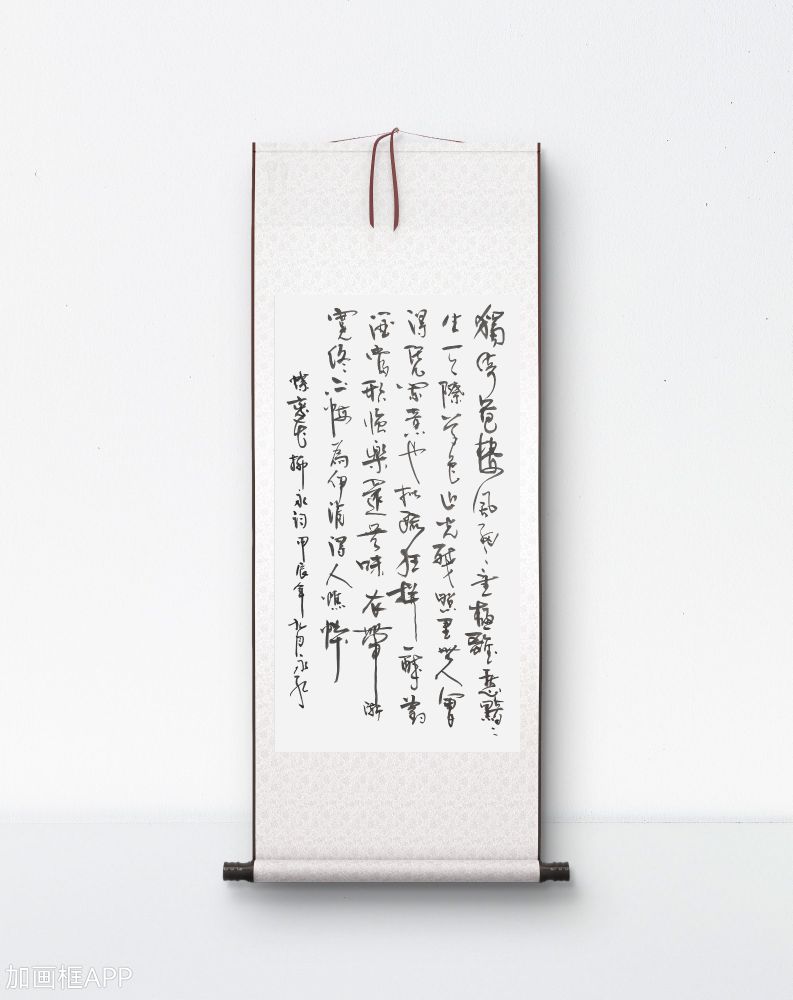 獨倚危樓風細〻望極離愁黯〻
生天際草色山光殘照里無人會
得凭闌意也拟疏狂拌一醉對
酒當歌強樂還無味衣帶漸
寬終不悔為伊消得人憔悴
蝶戀花柳永詞甲辰年九月永
加画框APP